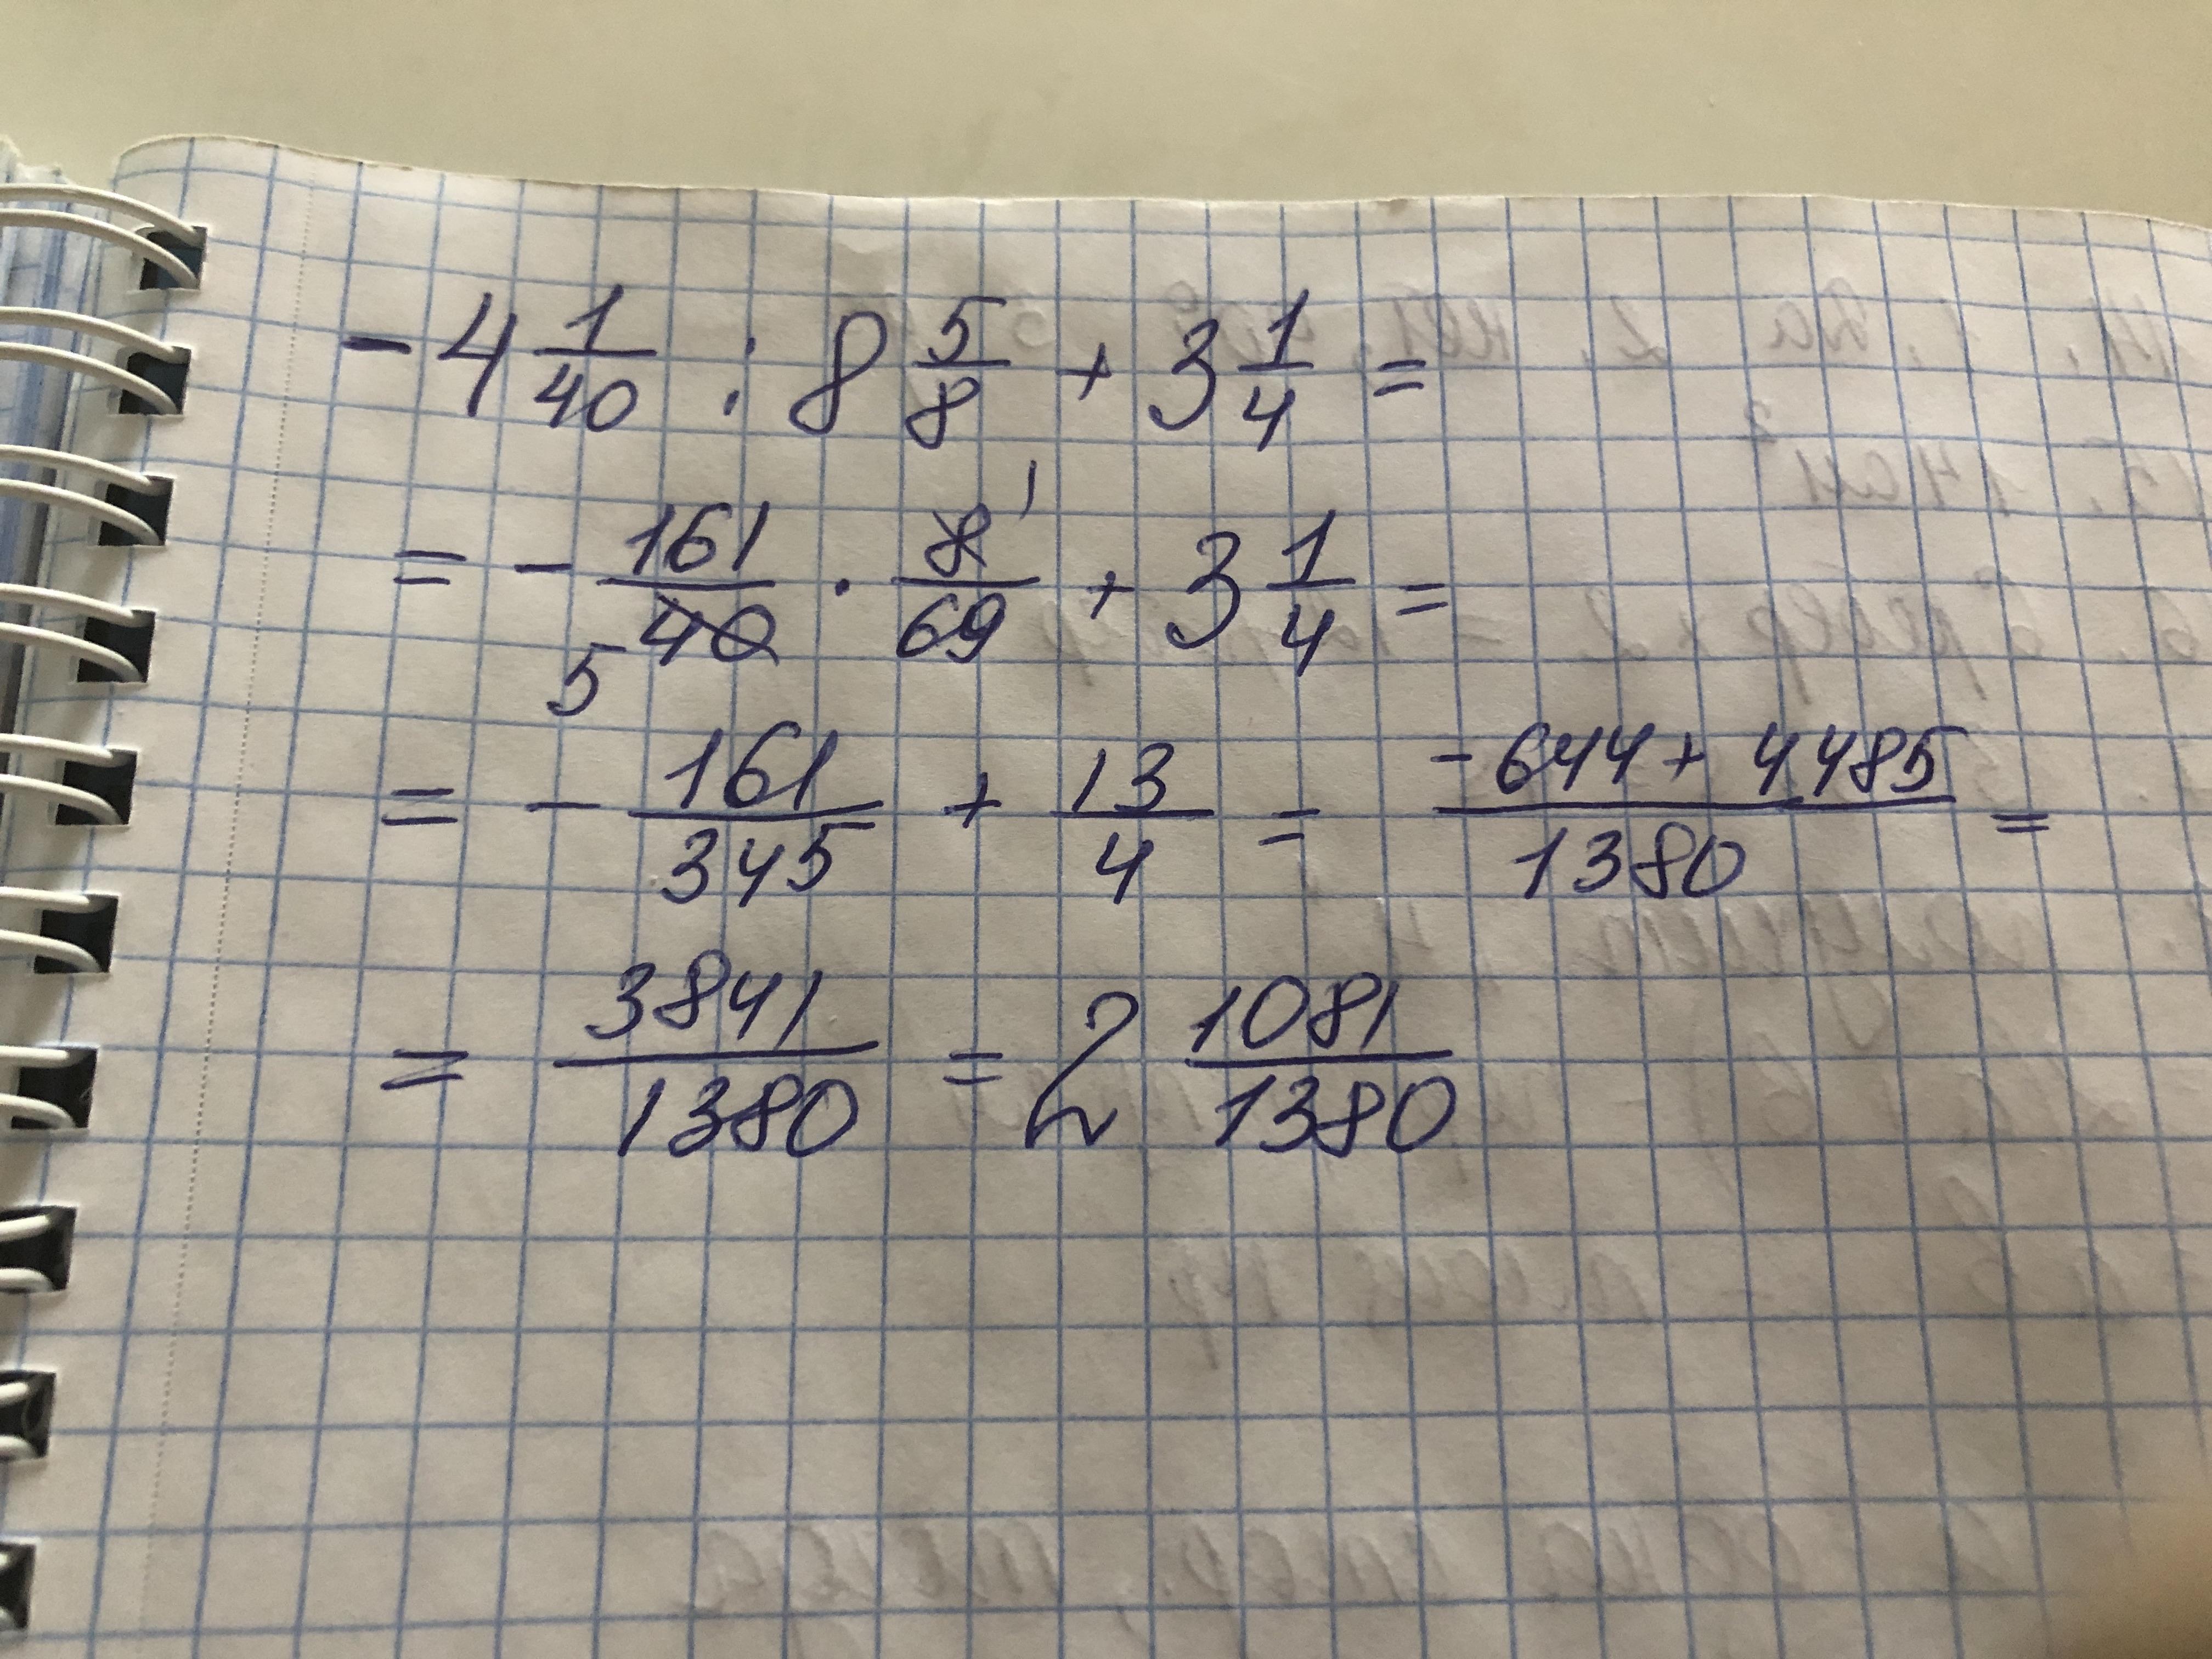 - 4 1/40 : 8 5/8 + 3 1/4 =
= - 161/40 5 · 8/69 1 + 3 1/4 =
= - 161/345 + 13/4 = - 644 + 4485 / 1380 =
= 3841/1380 = 2 1081/1380